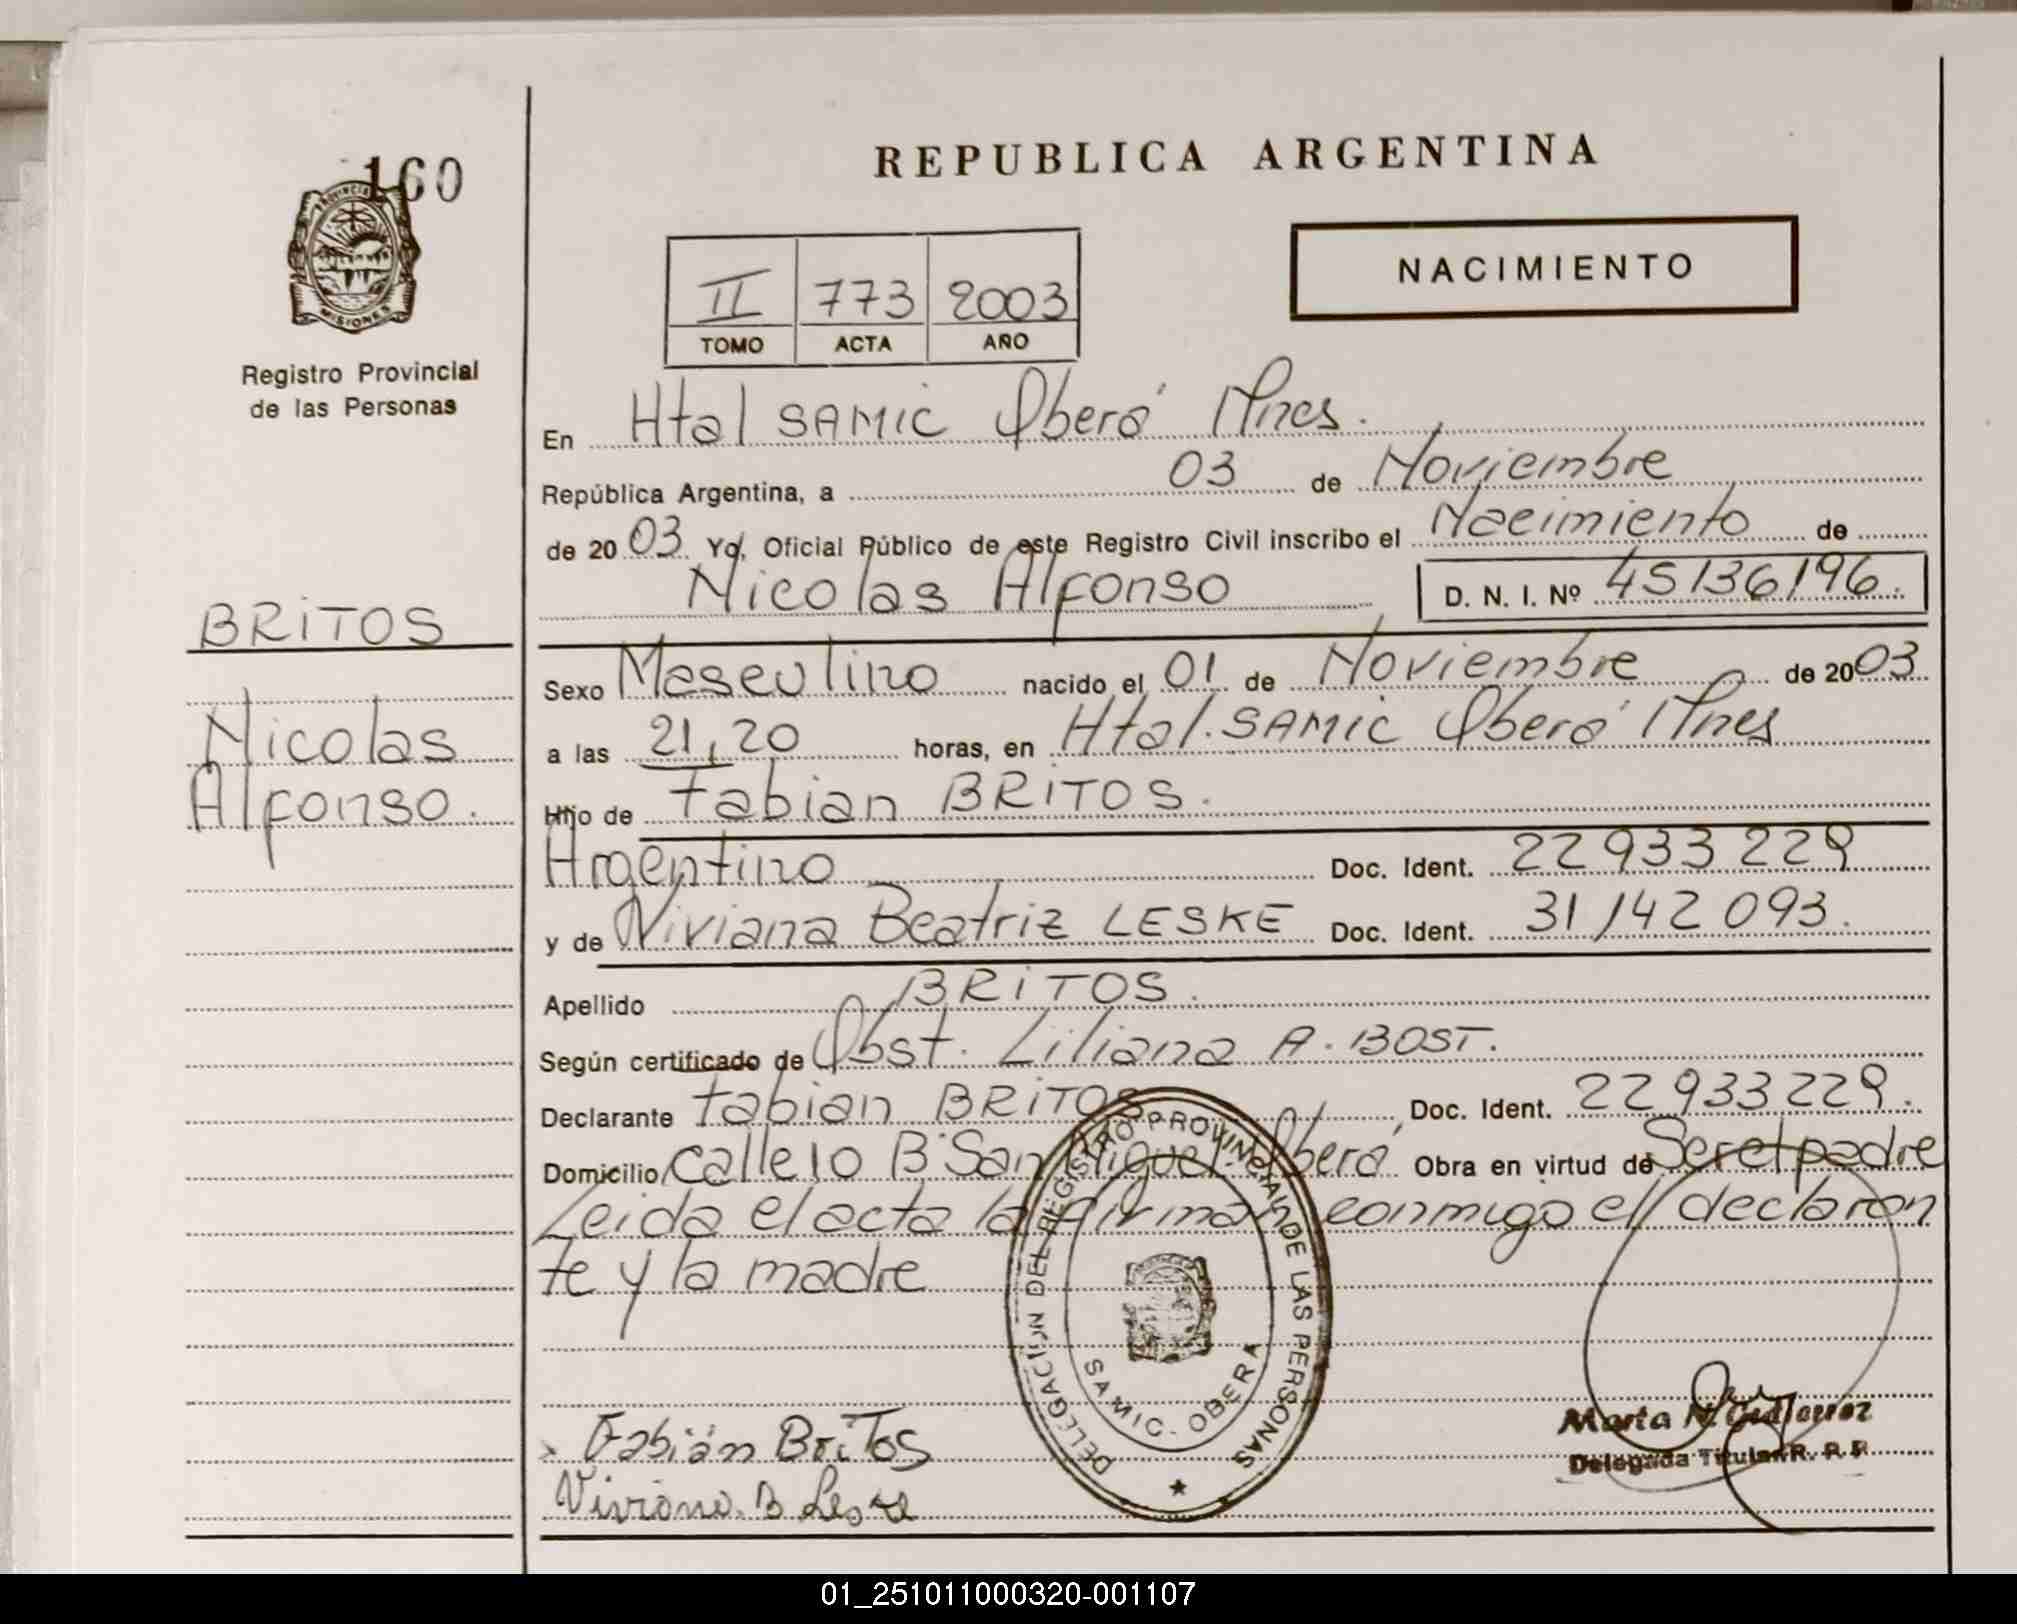 160
PROVINCIA
MISIONES
Registro Provincial
de las Personas
BRITOS
Nicolas
Alfonso.
REPUBLICA ARGENTINA
NACIMIENTO
II 773 2003
TOMO ACTA AÑO
En Htal SAMIC Oberá Mnes.
República Argentina, a 03 de Noviembre
de 2003 Yo, Oficial Público de este Registro Civil inscribo el Nacimiento de
Nicolas Alfonso D. N. I. Nº 45136196.
Sexo Masculino nacido el 01 de Noviembre de 2003
a las 21,20 horas, en Htal. SAMIC Oberá Mnes
Hijo de Fabian BRITOS.
Argentino Doc. Ident. 22933229
y de Viviana Beatriz LESKE Doc. Ident. 31142093.
Apellido BRITOS.
Según certificado de Obst. Liliana A. BOST.
Declarante Fabian BRITOS Doc. Ident. 22933229.
Domicilio Calle 10 Bº San Miguel. Oberá Obra en virtud de Ser el padre
Leida el acta la firman conmigo el declaran
te y la madre
DELEGACION DEL REGISTRO PROVINCIAL DE LAS PERSONAS
SAMIC - OBERA
Fabián BriTos
Viviana. B Leske
Marta N. Gutierrez
Delegada Titular R. P. P.
01_251011000320-001107